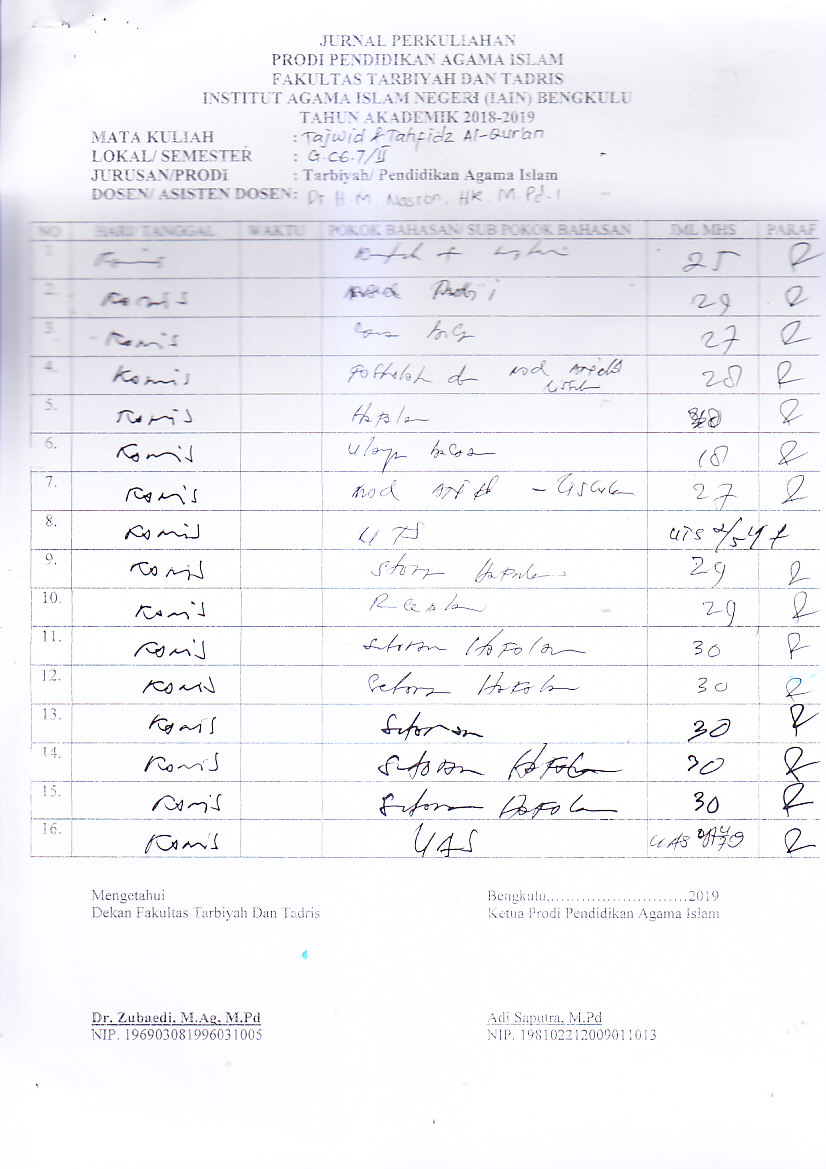 JURNAL PERKULIAHAN
PRODI PENDIDIKAN AGAMA ISLAM
FAKULTAS TARBIYAH DAN TADRIS
INSTITUT AGAMA ISLAM NEGERI (IAIN) BENGKULU
TAHUN AKADEMIK 2018-2019
MATA KULIAH : Tajwid & Tahfidz Al-Qur'an
LOKAL/ SEMESTER :
JURUSAN/PRODI : Tarbiyah/ Pendidikan Agama Islam
DOSEN/ ASISTEN DOSEN: Dr. H. M. Nasron, HK. M.Pd.I
NO HARI/ TANGGAL WAKTU POKOK BAHASAN/ SUB POKOK BAHASAN JML MHS PARAF
1. Kamis 25
2. Kamis 29
3. Kamis 27
4. Kamis 28
5. Kamis
6. Kamis 18
7. Kamis 27
8. Kamis UTS UTS
9. Kamis 29
10. Kamis 29
11. Kamis Setoran Hafalan 30
12. Kamis Setoran Hafalan 30
13. Kamis Setoran 30
14. Kamis Setoran Hafalan 30
15. Kamis Setoran Hafalan 30
16. Kamis UAS UAS
Mengetahui Bengkulu,...........................2019
Dekan Fakultas Tarbiyah Dan Tadris Ketua Prodi Pendidikan Agama Islam
Dr. Zubaedi, M.Ag, M.Pd Adi Saputra, M.Pd
NIP. 196903081996031005 NIP. 198102212009011013